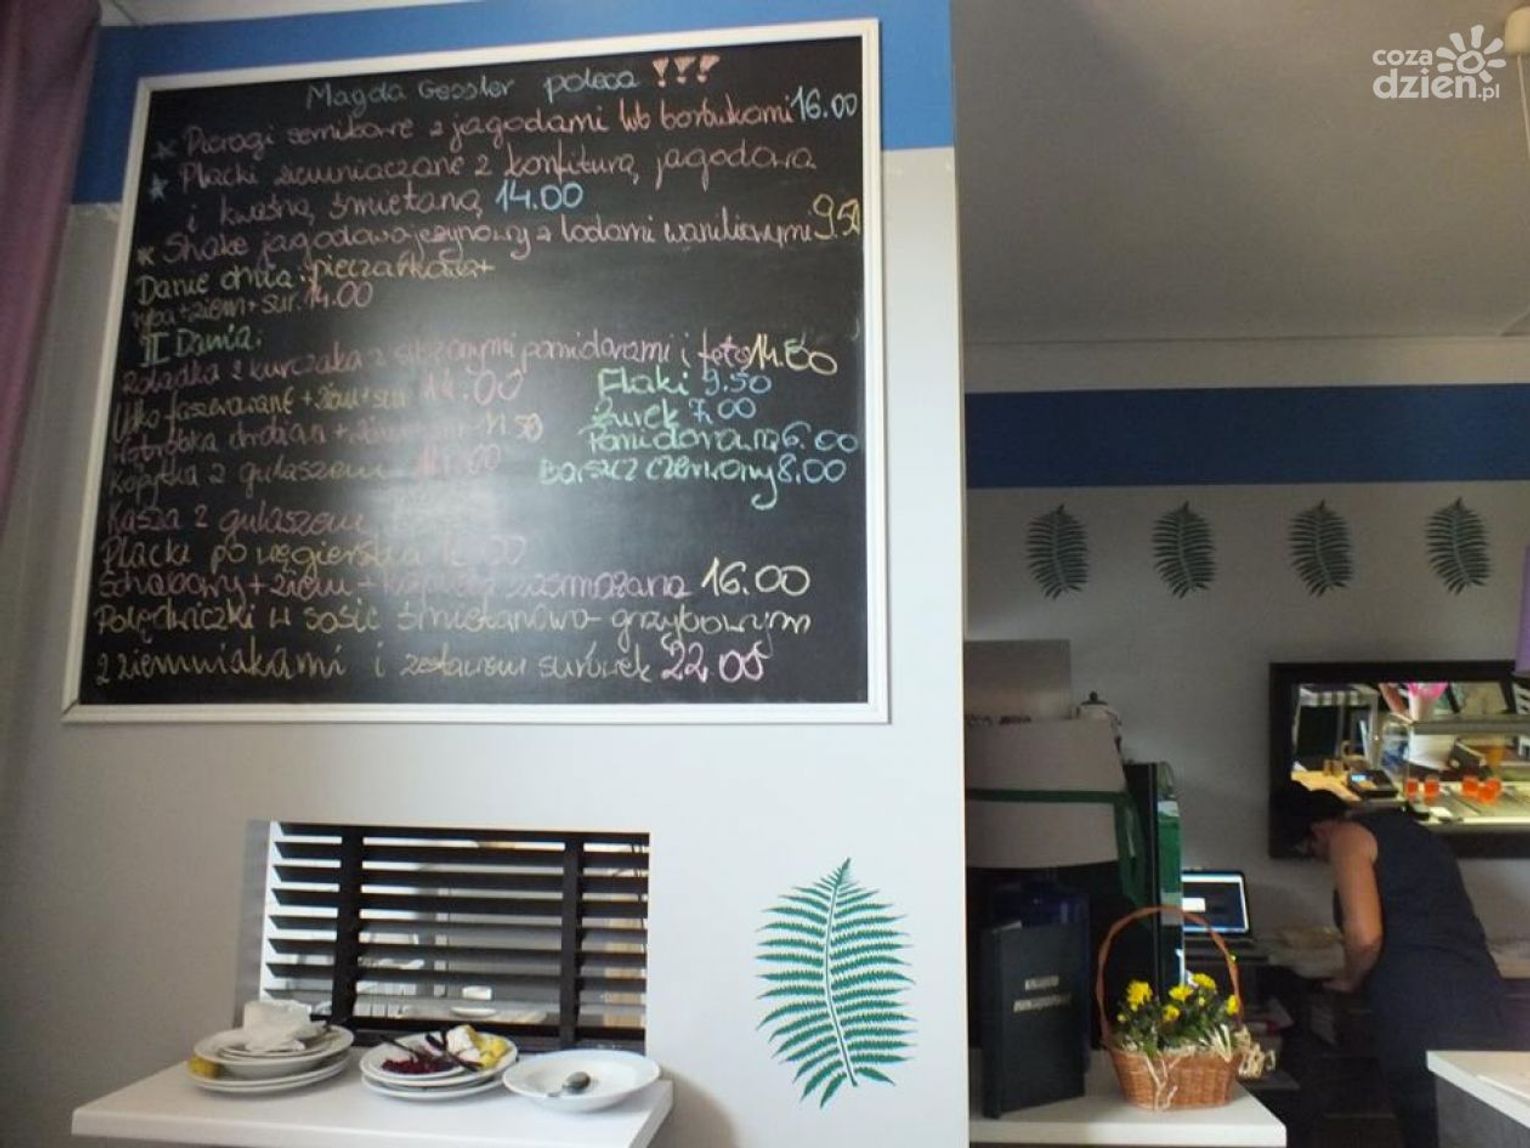 coza
dzień.pl
Magda Gessler poleca !!!
* Pierogi sernikowe z jagodami lub borówkami 16.00
* Placki ziemniaczane z konfiturą jagodową
i kwaśną śmietaną 14.00
* Shake jagodowo-jeżynowy z lodami waniliowymi 9.50
Danie dnia: pieczarkowa+
ryba+ziem+sur. 14.00
II Dania:
Roladka z kurczaka z suszonymi pomidorami i fetą 14.00
Udko faszerowane + ziem + sur 14.00
Flaki 9.50
Wątróbka drobiowa + 11.50
Żurek 7.00
Pomidorowa 6.00
Kopytka z gulaszem 11.00
Barszcz czerwony 8.00
Kasza z gulaszem
Placki po węgiersku
Schabowy + ziem + kapusta zasmażana 16.00
Polędwiczki w sosie śmietanowo-grzybowym
z ziemniakami i zestawem surówek 22.00